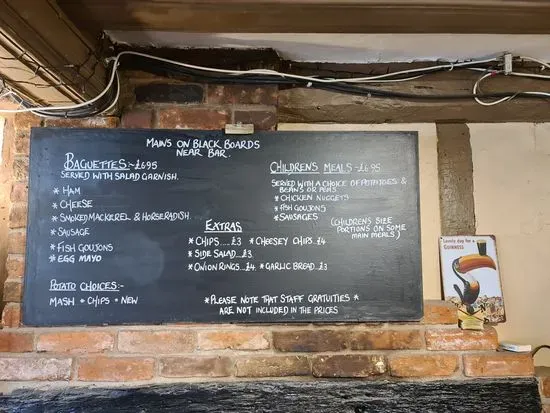 MAINS ON BLACK BOARDS
NEAR BAR.
BAGUETTES:- £6.95
SERVED WITH SALAD GARNISH.
* HAM
* CHEESE
* SMOKED MACKEREL & HORSERADISH
* SAUSAGE
* FISH GOUJONS
* EGG MAYO
POTATO CHOICES:-
MASH * CHIPS * NEW
EXTRAS
* CHIPS....£3 * CHEESEY CHIPS £4
* SIDE SALAD...£3
* ONION RINGS...£4 * GARLIC BREAD..£3
CHILDREN'S MEALS -£6.95
SERVED WITH A CHOICE OF POTATOES &
BEANS OR PEAS
* CHICKEN NUGGETS
* FISH GOUJONS
* SAUSAGES
(CHILDREN'S SIZE
PORTIONS ON SOME
MAIN MEALS)
* PLEASE NOTE THAT STAFF GRATUITIES *
ARE NOT INCLUDED IN THE PRICES
Lovely day for a
GUINNESS